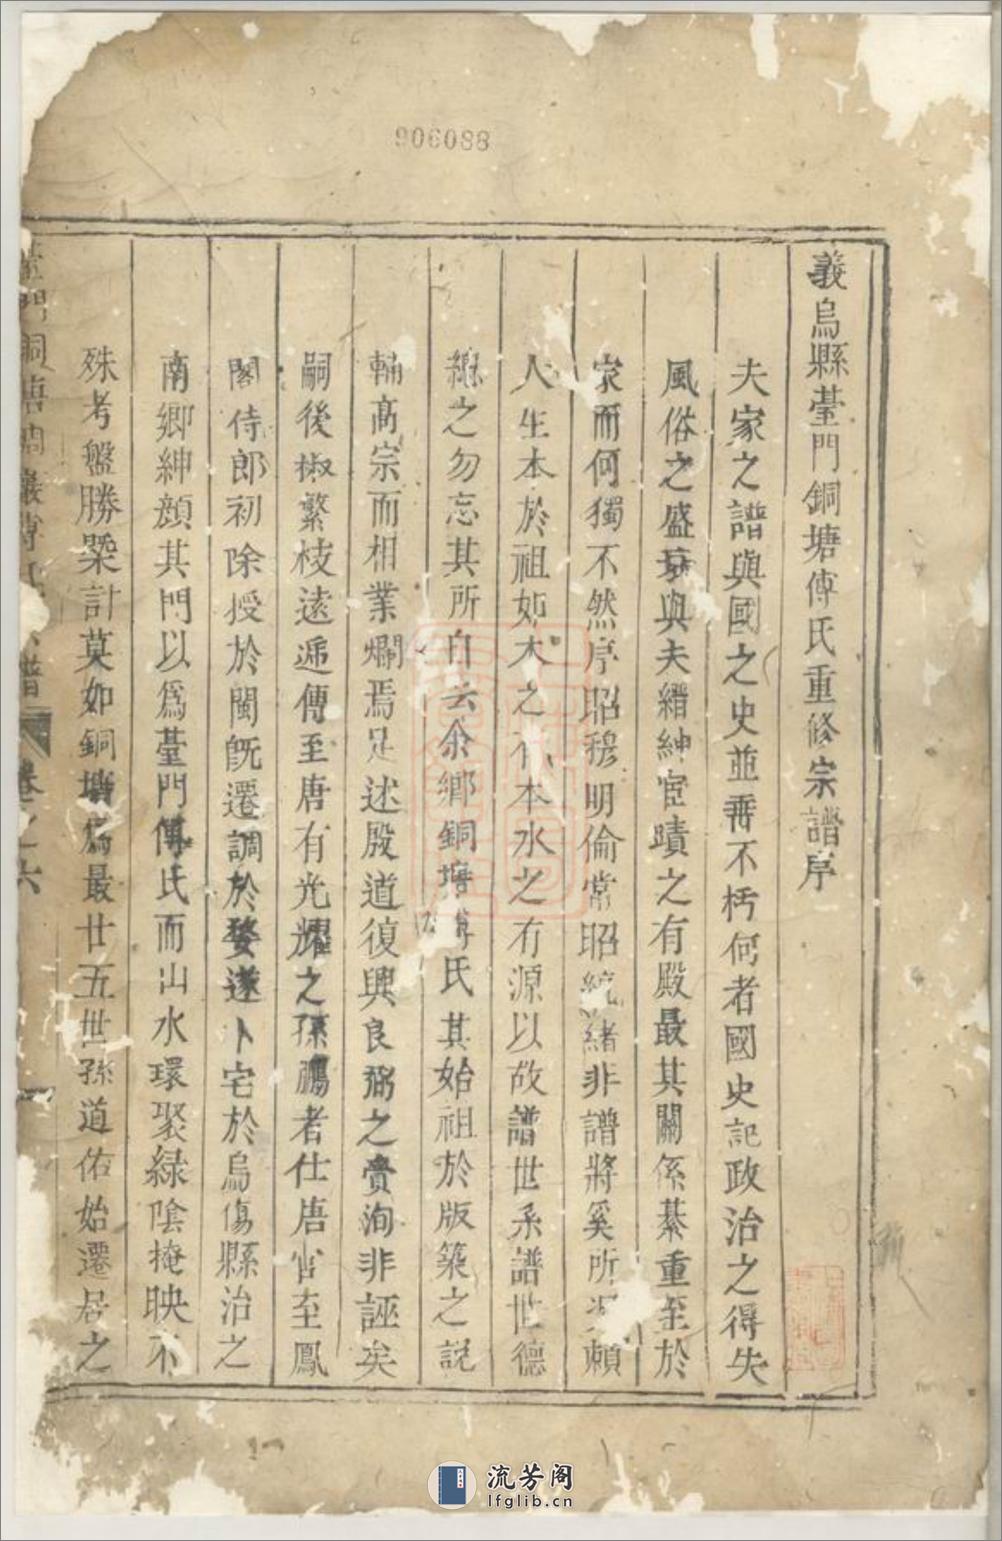 906088
義烏縣臺門銅塘傅氏重修宗譜序
夫家之譜與國之史並垂不朽何者國史記政治之得失
風俗之盛衰與夫縉紳宦蹟之有殿最其關係綦重至於
家而何獨不然序昭穆明倫常昭統緒非譜將奚所憑賴
人生本於祖如木之有本水之有源以故譜世系譜世德
繼之勿忘其所自云余鄉銅塘傅氏其始祖於版築之說
輔高宗而相業爛焉足述殷道復興良弼之賚洵非誣矣
嗣後椒繁枝遠遞傳至唐有光耀之孫鵬者仕唐官至鳳
閣侍郎初除授於閩旣遷調於婺遂卜宅於烏傷縣治之
南鄉紳顔其門以爲臺門傅氏而山水環聚綠陰掩映不
殊考盤勝槩計莫如銅塘爲最廿五世孫道佑始遷居之
門銅塘 巖傅 譜 卷之六
流芳阁
lfglib.cn